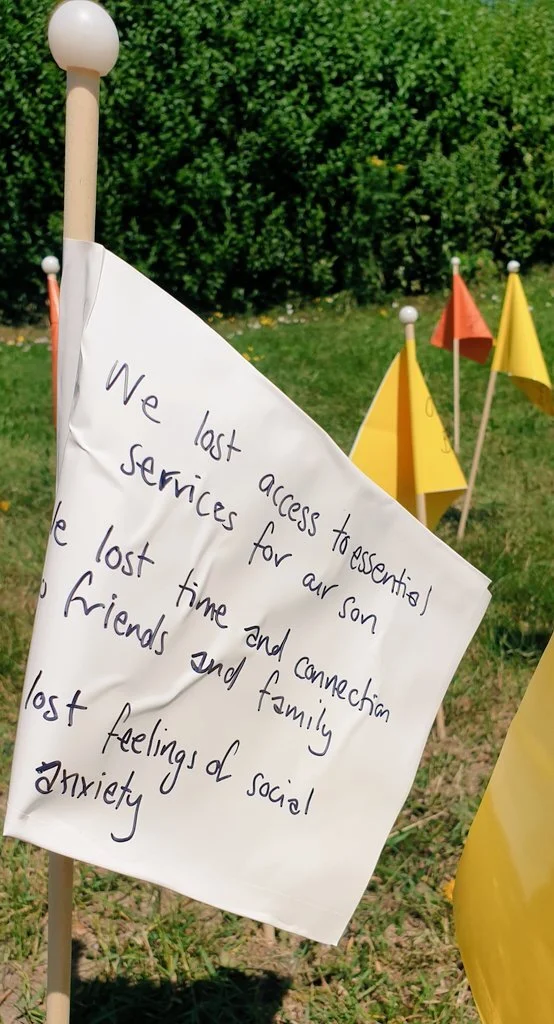 We lost access to essential
services for our son
e lost time and connection
o friends and family
lost feelings of social
anxiety